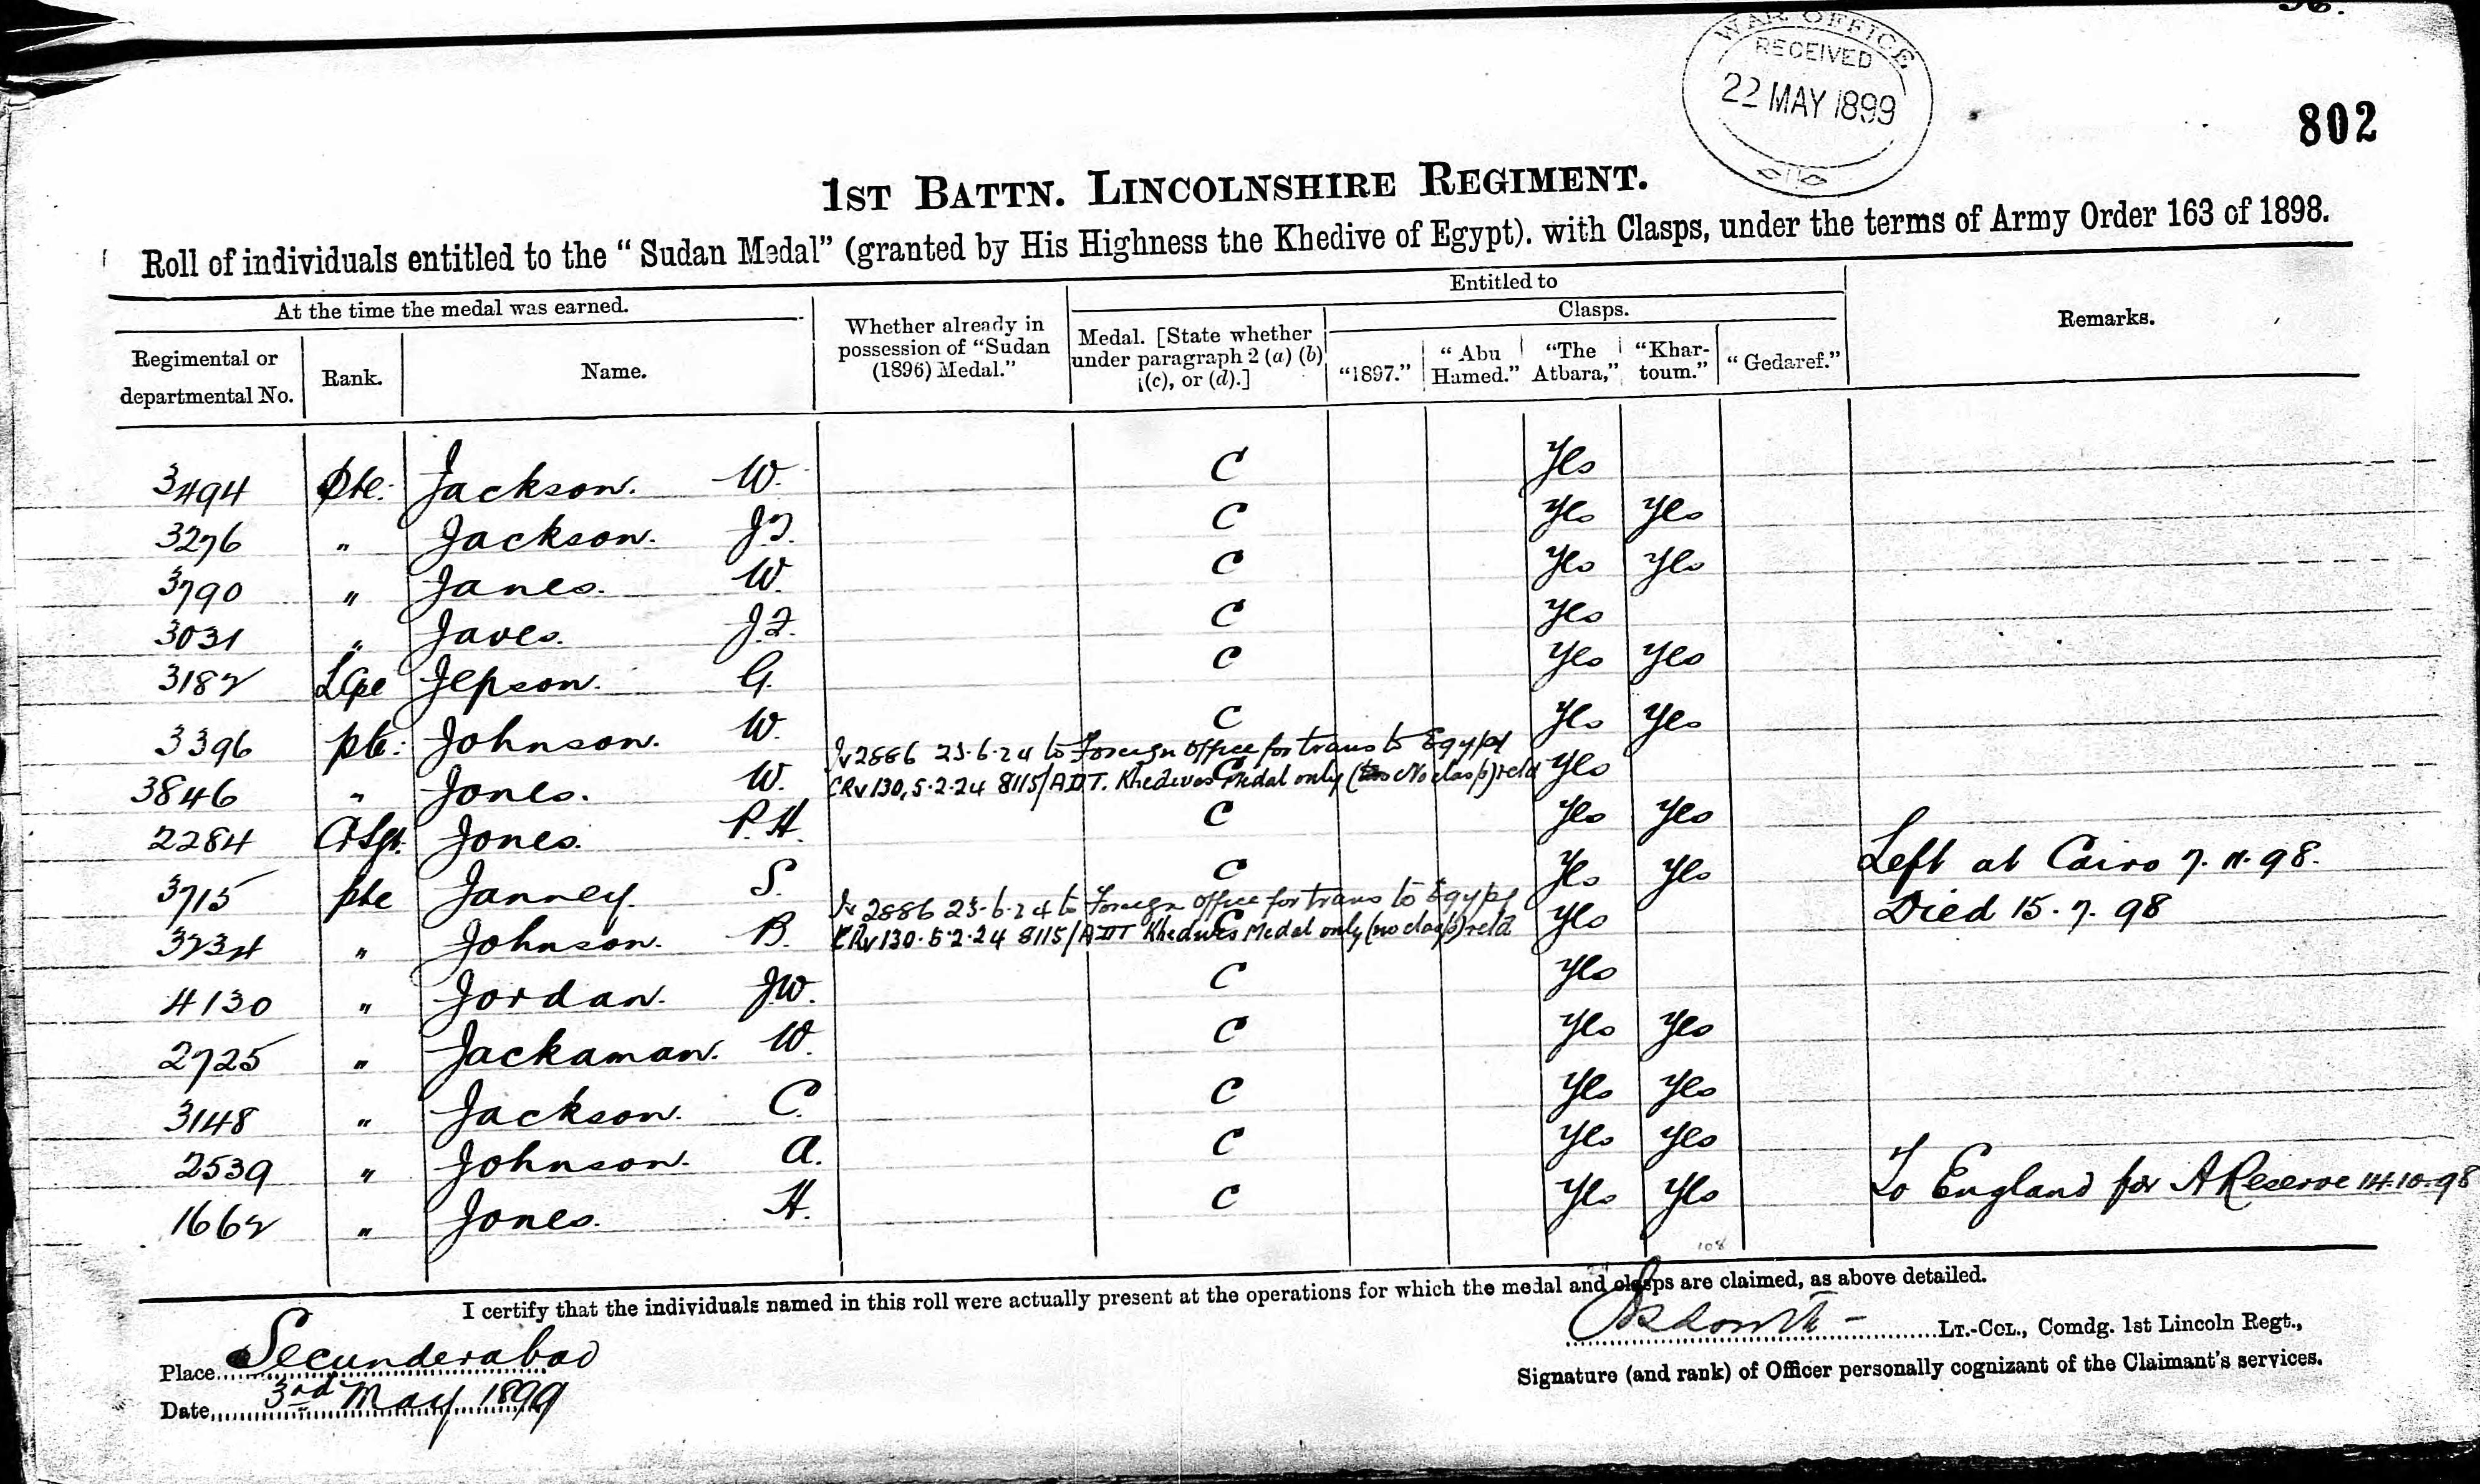 WAR OFFICE
RECEIVED
22 MAY 1899
802
1ST BATTN. LINCOLNSHIRE REGIMENT.
Roll of individuals entitled to the "Sudan Medal" (granted by His Highness the Khedive of Egypt), with Clasps, under the terms of Army Order 163 of 1898.
At the time the medal was earned.
Regimental or departmental No.
Rank.
Name.
Whether already in possession of "Sudan (1896) Medal."
Entitled to
Medal. [State whether under paragraph 2 (a) (b) (c), or (d).]
Clasps.
"1897."
"Abu Hamed."
"The Atbara,"
"Khartoum."
"Gedaref."
Remarks.
3494 Pte. Jackson. W. C Yes
3276 " Jackson. J. C Yes Yes
3790 " Janes. W. C Yes Yes
3031 " Javes. J. C Yes
3182 LCpe Jepson. G. C Yes Yes
3396 pte: Johnson. W. C Yes Yes
Iv 2886 23-6-24 to Foreign Office for trans to Egypt
3846 " Jones. W. C Yes
CRv 130, 5.2.24 8115/ADT. Khedives Medal only (No clasp) retd
2284 Cr Sgt. Jones. P.H. C Yes Yes
3715 pte Janney. S. C Yes Yes Left at Cairo 7.11.98.
Iv 2886 23-6-24 to Foreign Office for trans to Egypt
3234 " Johnson. B. C Yes Died 15.7.98
CRv 130.5.2.24 8115/ADT Khedives Medal only (no clasp) retd
4130 " Jordan. J.W. C Yes
2725 " Jackaman. W. C Yes Yes
3148 " Jackson. C. C Yes Yes
2539 " Johnson. A. C Yes Yes
1662 " Jones. H. C Yes Yes To England for A Reserve 14.10.98
108
I certify that the individuals named in this roll were actually present at the operations for which the medal and clasps are claimed, as above detailed.
Place Secunderabad
LT.-COL., Comdg. 1st Lincoln Regt.,
Signature (and rank) of Officer personally cognizant of the Claimant's services.
Date 3rd May 1899